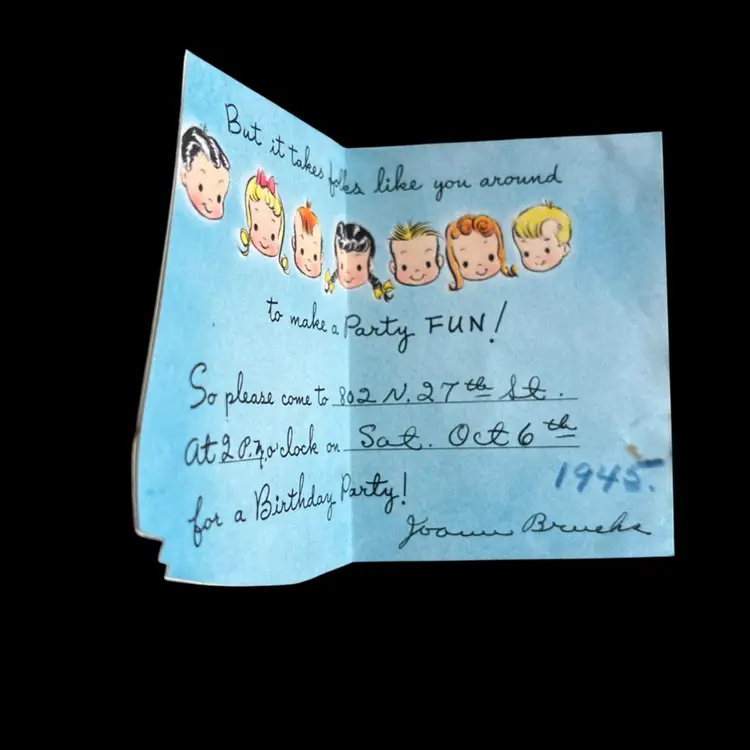 But it takes folks like you around
to make a Party FUN!
So please come to 802 N. 27th St.
At 2 P.M. o'clock on Sat. Oct 6th
1945.
for a Birthday Party!
Joann